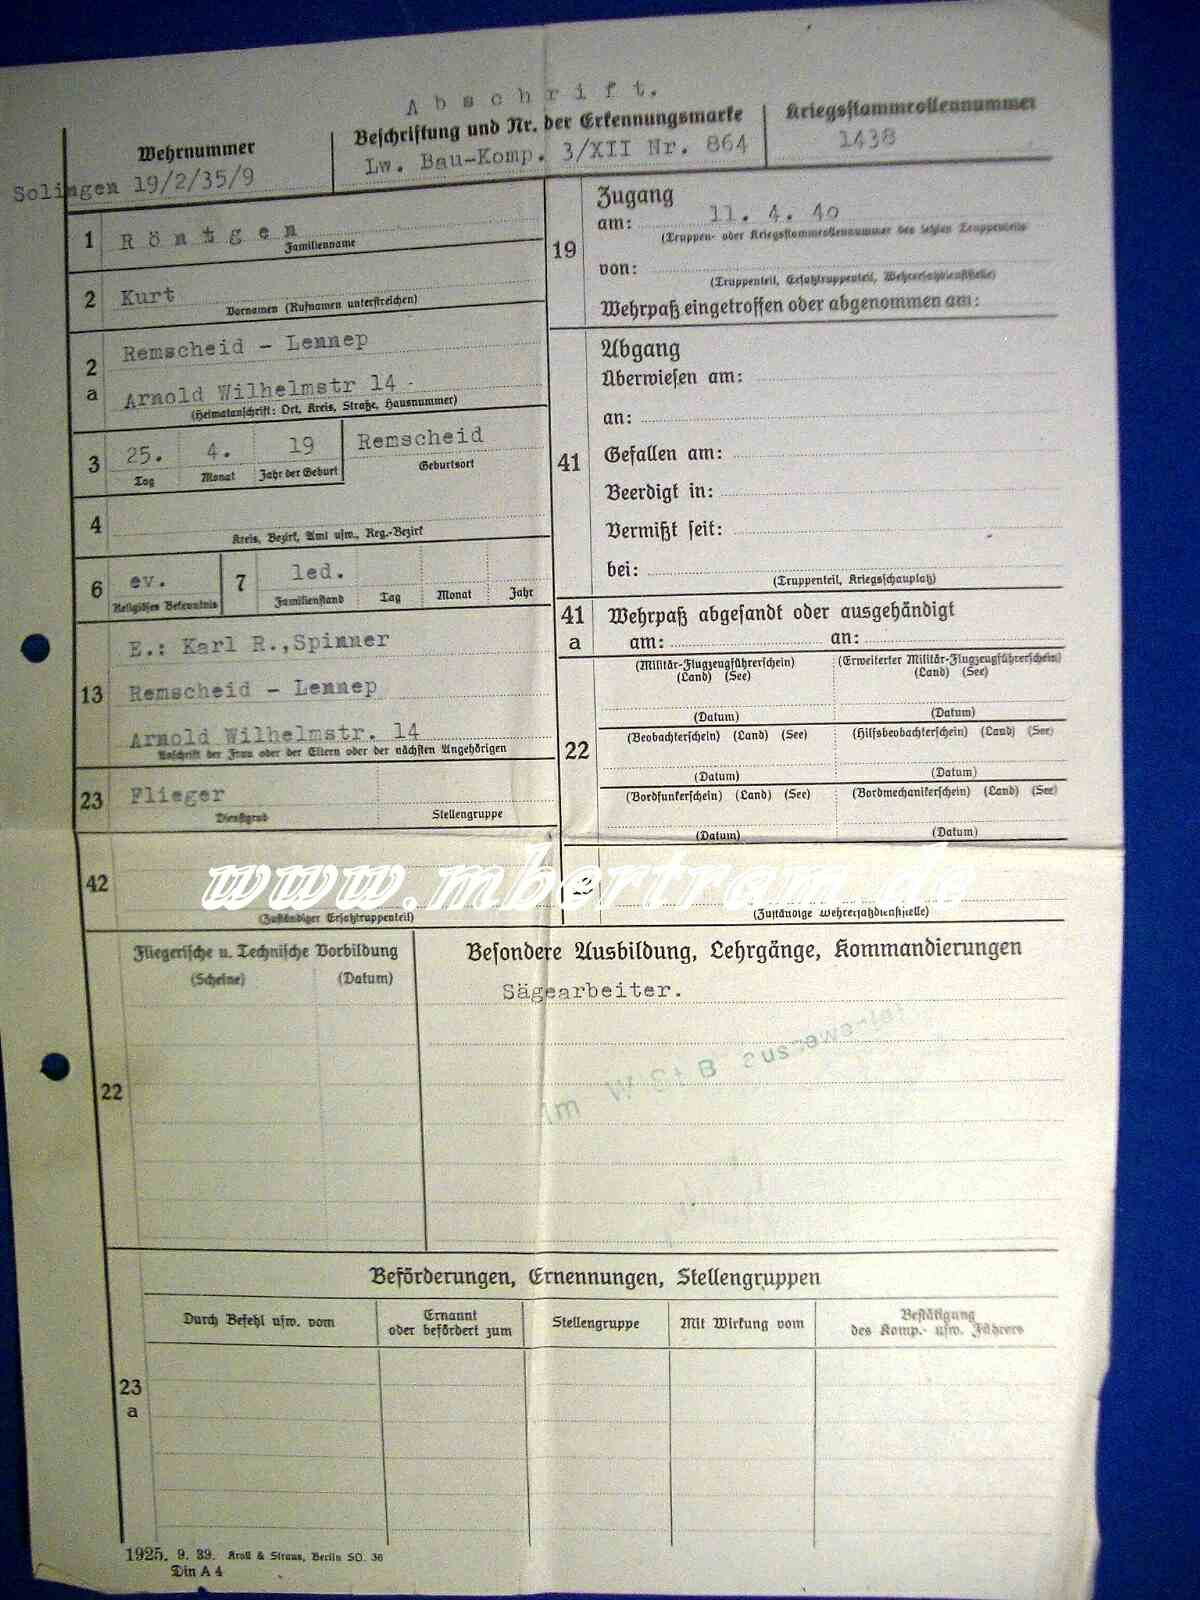 Abschrift.
Wehrnummer
Solingen 19/2/35/9
Beschriftung und Nr. der Erkennungsmarke
Lw. Bau-Komp. 3/XII Nr. 864
Kriegsstammrollennummer
1438
1 Röntgen
Familienname
2 Kurt
Vornamen (Rufnamen unterstreichen)
2a Remscheid - Lennep
Arnold Wilhelmstr 14
(Heimatanschrift: Ort, Kreis, Straße, Hausnummer)
3 25. 4. 19 Remscheid
Tag Monat Jahr der Geburt Geburtsort
4
Kreis, Bezirk, Amt usw., Reg.-Bezirk
6 ev. 7 led.
Religiöses Bekenntnis Familienstand Tag Monat Jahr
E.: Karl R.,Spinner
13 Remscheid - Lennep
Arnold Wilhelmstr. 14
Anschrift der Frau oder der Eltern oder der nächsten Angehörigen
23 Flieger
Dienstgrad Stellengruppe
42
(Zuständiger Ersatztruppenteil)
19 Zugang
am: 11. 4. 40
(Truppen- oder Kriegsstammrollennummer des letzten Truppenteils
von:
(Truppenteil, Ersatztruppenteil, Wehrersatzdienststelle)
Wehrpaß eingetroffen oder abgenommen am:
41 Abgang
Überwiesen am:
an:
Gefallen am:
Beerdigt in:
Vermißt seit:
bei:
(Truppenteil, Kriegsschauplatz)
41a Wehrpaß abgesandt oder ausgehändigt
am: an:
22
(Militär-Flugzeugführerschein) (Erweiterter Militär-Flugzeugführerschein)
(Land) (See) (Land) (See)
(Datum) (Datum)
(Beobachterschein) (Land) (See) (Hilfsbeobachterschein) (Land) (See)
(Datum) (Datum)
(Bordfunkerschein) (Land) (See) (Bordmechanikerschein) (Land) (See)
(Datum) (Datum)
(Zuständige Wehrersatzdienststelle)
www.mbertram.de
22 Fliegerische u. Technische Vorbildung
(Scheine) (Datum)
Besondere Ausbildung, Lehrgänge, Kommandierungen
Sägearbeiter.
Im W St B
Beförderungen, Ernennungen, Stellengruppen
23a
Durch Befehl usw. vom
Ernannt
oder befördert zum
Stellengruppe
Mit Wirkung vom
Bestätigung
des Komp.- usw. Führers
1925. 9. 39. Kroll & Straus, Berlin SO. 36
Din A 4